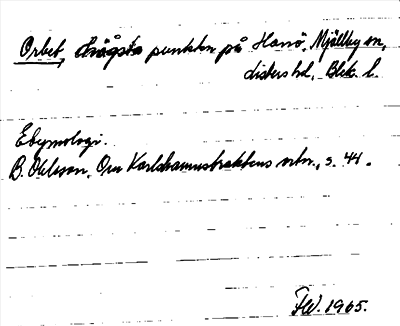 Orbet, högsta punkten på Hanö, Mjällby sn,
Listers hd, Blek. l.
Etymologi.
B. Ohlsson, Om Karlshamnstraktens ortn., s. 44.
FW. 1965.